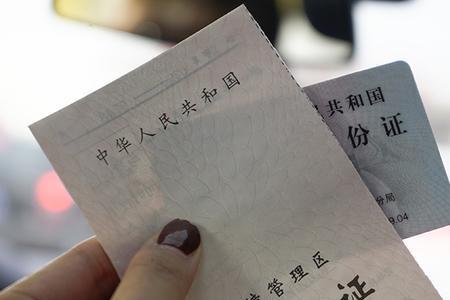 中华人民共和国
特管理区
证
共和国
份证
分局
9.04